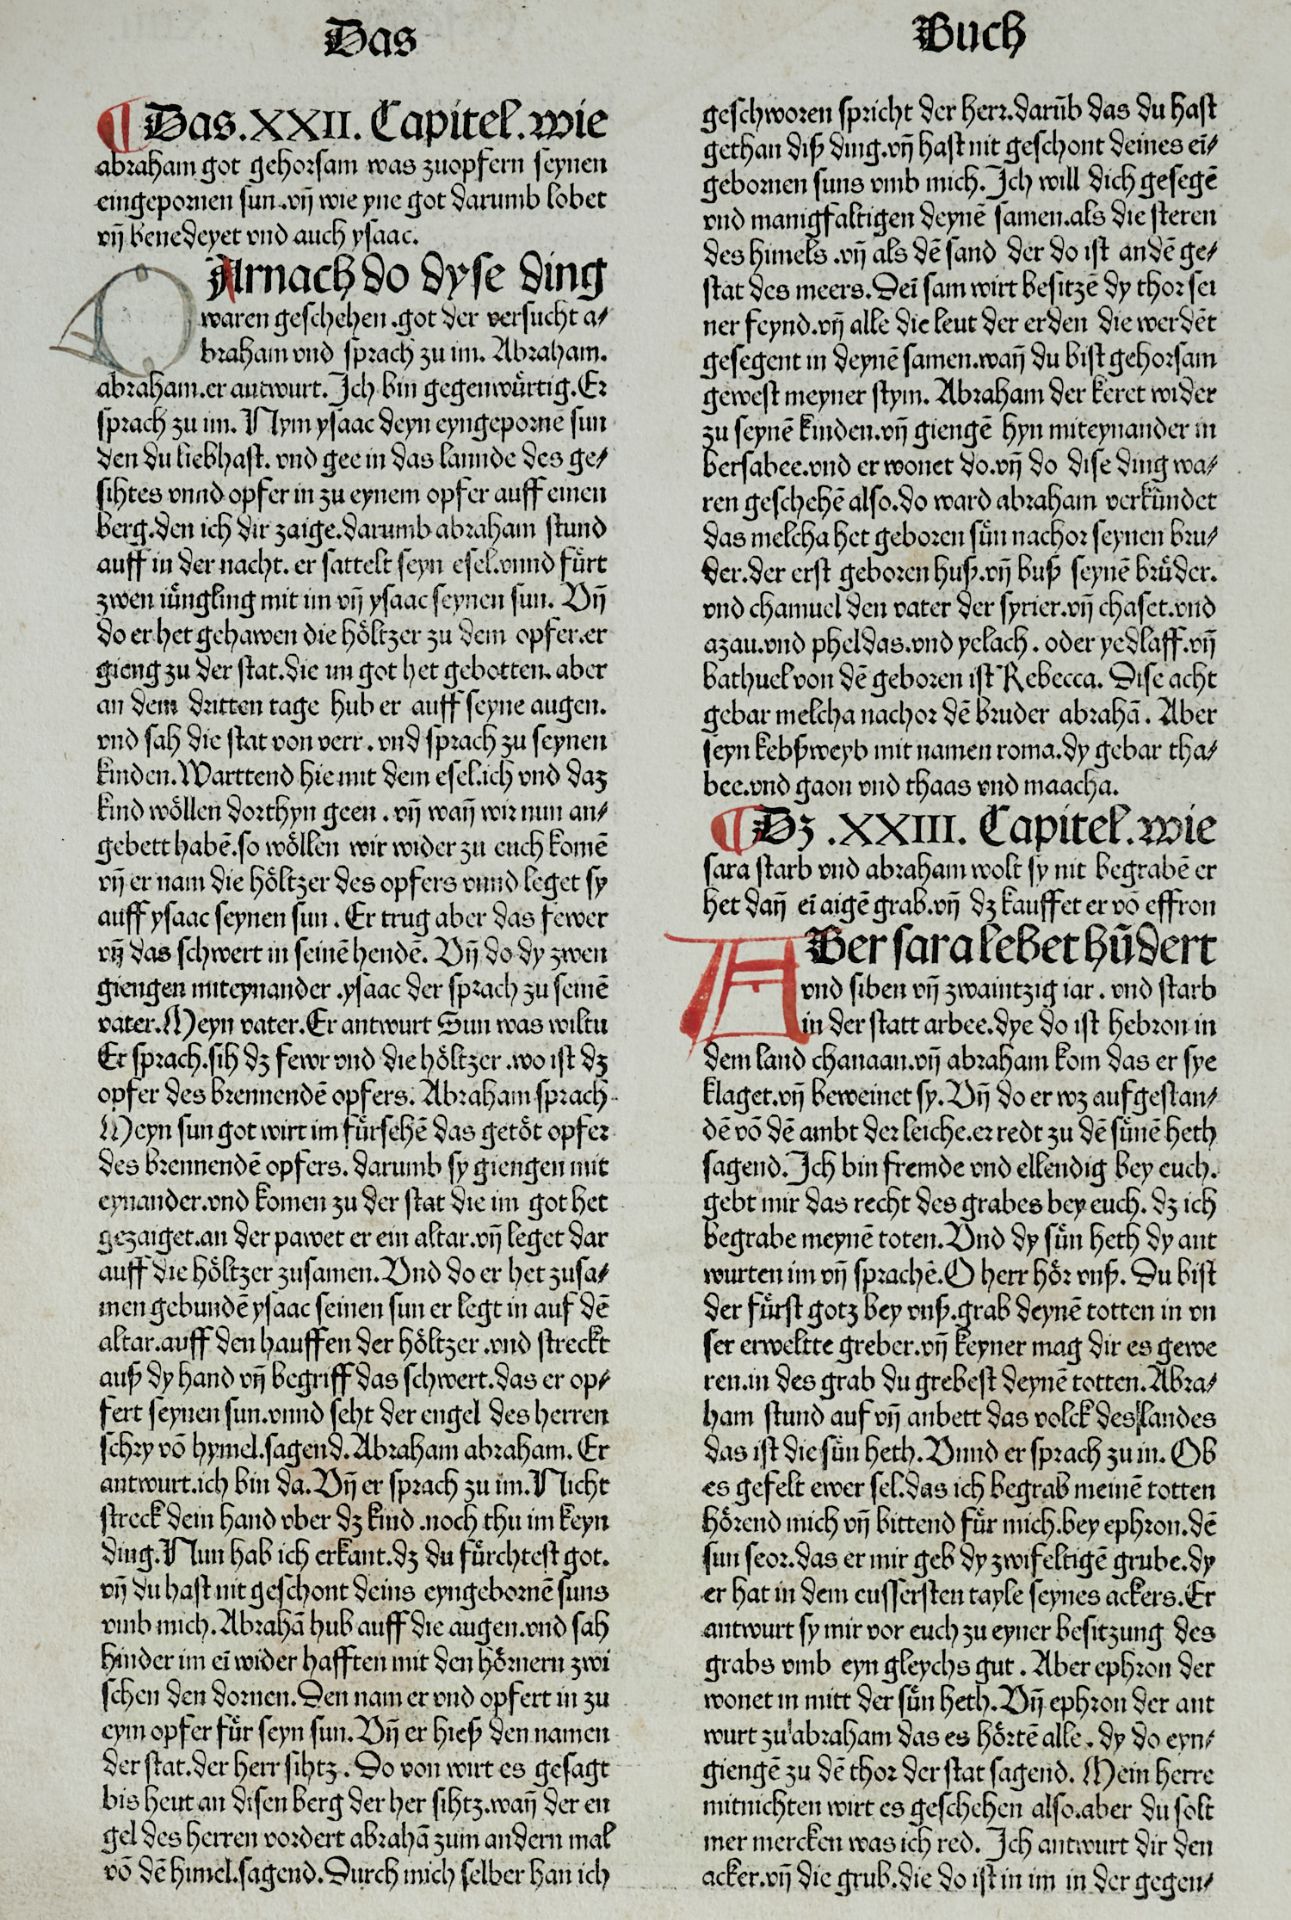 Das
Buch
Das.XXII.Capitel.wie
abraham got gehorsam was zuopfern seynen
eingepornen sun.vñ wie yne got darumb lobet
vñ benedeyet vnd auch ysaac.
DArnach do dyse ding
waren geschehen.got der versucht a-
braham vnd sprach zu im. Abraham.
abraham.er antwurt.Ich bin gegenwürtig.Er
sprach zu im. Nym ysaac deyn eyngepornẽ sun
den du liebhast. vnd gee in das lannde des ge-
sihtes vnnd opfer in zu eynem opfer auff einen
berg.den ich dir zaige.darumb abraham stund
auff in der nacht. er sattelt seyn esel.vnnd fürt
zwen iüngling mit im vñ ysaac seynen sun. Vñ
do er het gehawen die höltzer zu dem opfer.er
gieng zu der stat.die im got het gebotten. aber
an dem dritten tage hub er auff seyne augen.
vnd sah die stat von verr. vnd sprach zu seynen
kinden.Warttend hie mit dem esel.ich vnd daz
kind wöllen dorthyn geen. vñ wañ wir nun an-
gebett habẽ.so wöllen wir wider zu euch komẽ
vñ er nam die höltzer des opfers vnnd leget sy
auff ysaac seynen sun. Er trug aber das fewer
vñ das schwert in seinẽ hendẽ. Vñ do dy zwen
giengen miteynander.ysaac der sprach zu seinẽ
vater.Meyn vater.Er antwurt Sun was wiltu
Er sprach.sih dz fewr vnd die höltzer.wo ist dz
opfer des brennendẽ opfers. Abraham sprach
Meyn sun got wirt im fürsehẽ das getöt opfer
des brennendẽ opfers. darumb sy giengen mit
eynander.vnd komen zu der stat die im got het
gezaiget.an der pawet er ein altar.vñ leget dar
auff die höltzer zusamen.Vnd do er het zusa-
men gebundẽ ysaac seinen sun er legt in auf dẽ
altar.auff den hauffen der höltzer.vnd streckt
auß dy hand vñ begriff das schwert.das er op-
fert seynen sun.vnnd seht der engel des herren
schry võ hymel.sagend.Abraham abraham. Er
antwurt.ich bin da.Vñ er sprach zu im.Nicht
streck dein hand vber dz kind.noch thu im keyn
ding.Nun hab ich erkant.dz du fürchtest got.
vñ du hast nit geschont deins eyngebornẽ suns
vmb mich.Abrahã hub auff die augen.vnd sah
hinder im eĩ wider hafften mit den hörnern zwi
schen den dornen.Den nam er vnd opfert in zu
eym opfer für seyn sun. Vñ er hieß den namen
der stat.der herr sihtz. Do von wirt es gesagt
bis heut an disen berg der her sihtz.wañ der en
gel des herren vordert abrahã zum andern mal
võ dẽ himel.sagend.Durch mich selber han ich
geschworen spricht der herr.darũb das du hast
gethan diß ding.vñ hast nit geschont deines eĩ-
gebornen suns vmb mich.Ich will dich gesegẽ
vnd manigfaltigen deynẽ samen.als die steren
des himels.vñ als dẽ sand der do ist an dẽ ge-
stat des meers.Deĩ sam wirt besitzẽ dy thor sei
ner feynd.vñ alle die leut der erden die werdẽt
gesegent in deynẽ samen.wañ du bist gehorsam
gewest meyner stym. Abraham der keret wider
zu seynẽ kinden.vñ giengẽ hyn miteynander in
bersabee.vnd er wonet do.vñ do dise ding wa-
ren geschehẽ also.do ward abraham verkündet
das melcha het geboren sün nachor seynen bru-
der.der erst geboren huß.vñ buß seynẽ brüder.
vnd chamuel den vater der syrier.vñ chaset.vnd
azau.vnd pheldas.vnd yelach. oder yedlaff.vñ
bathuel von dẽ geboren ist Rebecca. Dise acht
gebar melcha nachor dẽ bruder abrahã. Aber
seyn kebßweyb mit namen roma.dy gebar tha-
bee.vnd gaon vnd thaas vnd maacha.
Dz.XXIII. Capitel.wie
sara starb vnd abraham wolt sy nit begrabẽ er
het dañ eĩ aigẽ grab.vñ dz kauffet er võ effron
ABer sara lebet hũdert
vnd siben vñ zwaintzig iar. vnd starb
in der statt arbee.dye do ist hebron in
dem land chanaan.vñ abraham kom das er sye
klaget.vñ beweinet sy.Vñ do er wz aufgestan-
dẽ võ dẽ ambt der leiche.er redt zu dẽ sünẽ heth
sagend.Ich bin fremde vnd ellendig bey euch.
gebt mir das recht des grabes bey euch. dz ich
begrabe meynẽ toten.Vnd dy sün heth dy ant
wurten im vñ sprachẽ.O herr hör vnß. Du bist
der fürst gotz bey vnß.grab deynẽ totten in vn
ser erweltte greber.vñ keyner mag dir es gewe
ren.in des grab du grebest deynẽ totten.Abra-
ham stund auf vñ anbett das volck des landes
das ist die sün heth. Vnnd er sprach zu in. Ob
es gefelt ewer sel.das ich begrab meinẽ totten
hörend mich vñ bittend für mich.bey ephron.dẽ
sun seor.das er mir geb dy zwifeltigẽ grube.dy
er hat in dem eussersten tayle seynes ackers.Er
antwurt sy mir vor euch zu eyner besitzung des
grabs vmb eyn gleychs gut. Aber ephron der
wonet in mitt der sün heth. Vñ ephron der ant
wurt zu abraham das es hörtẽ alle. dy do eyn-
giengẽ zu dẽ thor der stat sagend. Mein herre
mitnichten wirt es geschehen also.aber du solt
mer mercken was ich red. Ich antwurt dir den
acker.vñ die grub.die do ist in im in der gegen-